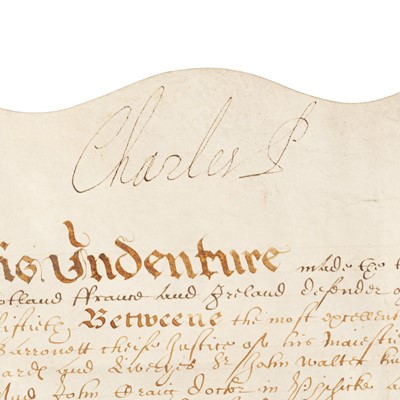 Charles P
is Indenture made the
otland ffrance and Ireland defender o
Betweene the most excellen
Barronett cheife Justice of his Majestie
and Liveryes Sr John Walter
And John Craig doctor in Phisicke a